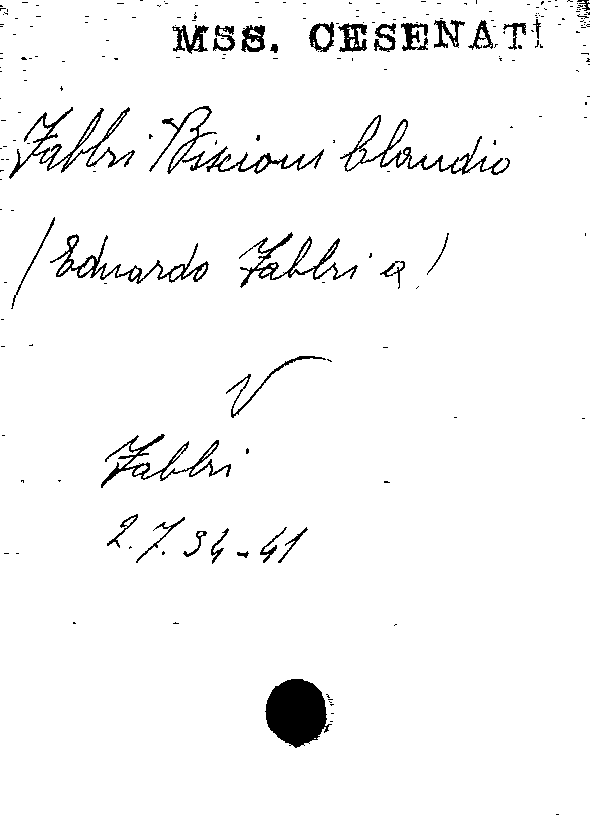 MSS. CESENATI
Fabbri Biscioni Claudio
(Eduardo Fabbri a)
V
Fabbri
2.7.34-41